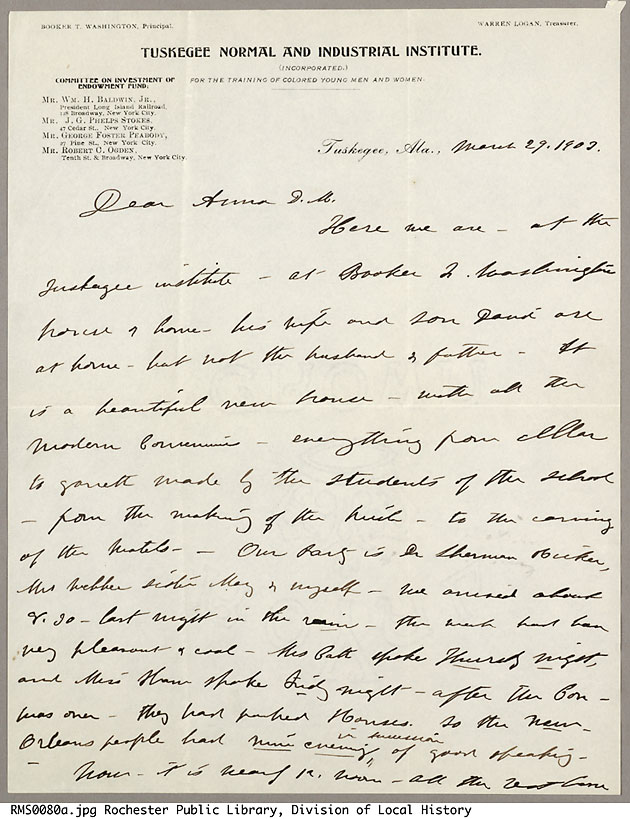 BOOKER T. WASHINGTON, Principal. WARREN LOGAN, Treasurer.
TUSKEGEE NORMAL AND INDUSTRIAL INSTITUTE.
(INCORPORATED.)
FOR THE TRAINING OF COLORED YOUNG MEN AND WOMEN.
COMMITTEE ON INVESTMENT OF
ENDOWMENT FUND:
MR. WM. H. BALDWIN, JR.,
President Long Island Railroad,
128 Broadway, New York City.
MR. J. G. PHELPS STOKES,
47 Cedar St., New York City.
MR. GEORGE FOSTER PEABODY,
27 Pine St., New York City.
MR. ROBERT C. OGDEN,
Tenth St. & Broadway, New York City.
Tuskegee, Ala., March 29. 1903.
Dear Anna D. M.
Here we are - at the
Tuskegee institute - at Booker T. Washington
house & home - his wife and son David are
at home - but not the husband & father - It
is a beautiful new house - with all the
modern Conveniences - everything from cellar
to garrett made by the students of the school
- from the making of the brick - to the carving
of the mantels - - Our Party is Dr Sherman
Mrs Webber sister Mary & myself - we arrived about
8.30 - last night in the rain - the week had been
very pleasant & cool - Mrs Catt spoke Thursdy night,
and Miss Shaw spoke Fridy night - after the Con -
was over - they had packed Houses. so the New-
Orleans people had nine evenings in succession of good speaking -
Now - it is nearly 12. noon - all the rest have
RMS0080a.jpg Rochester Public Library, Division of Local History